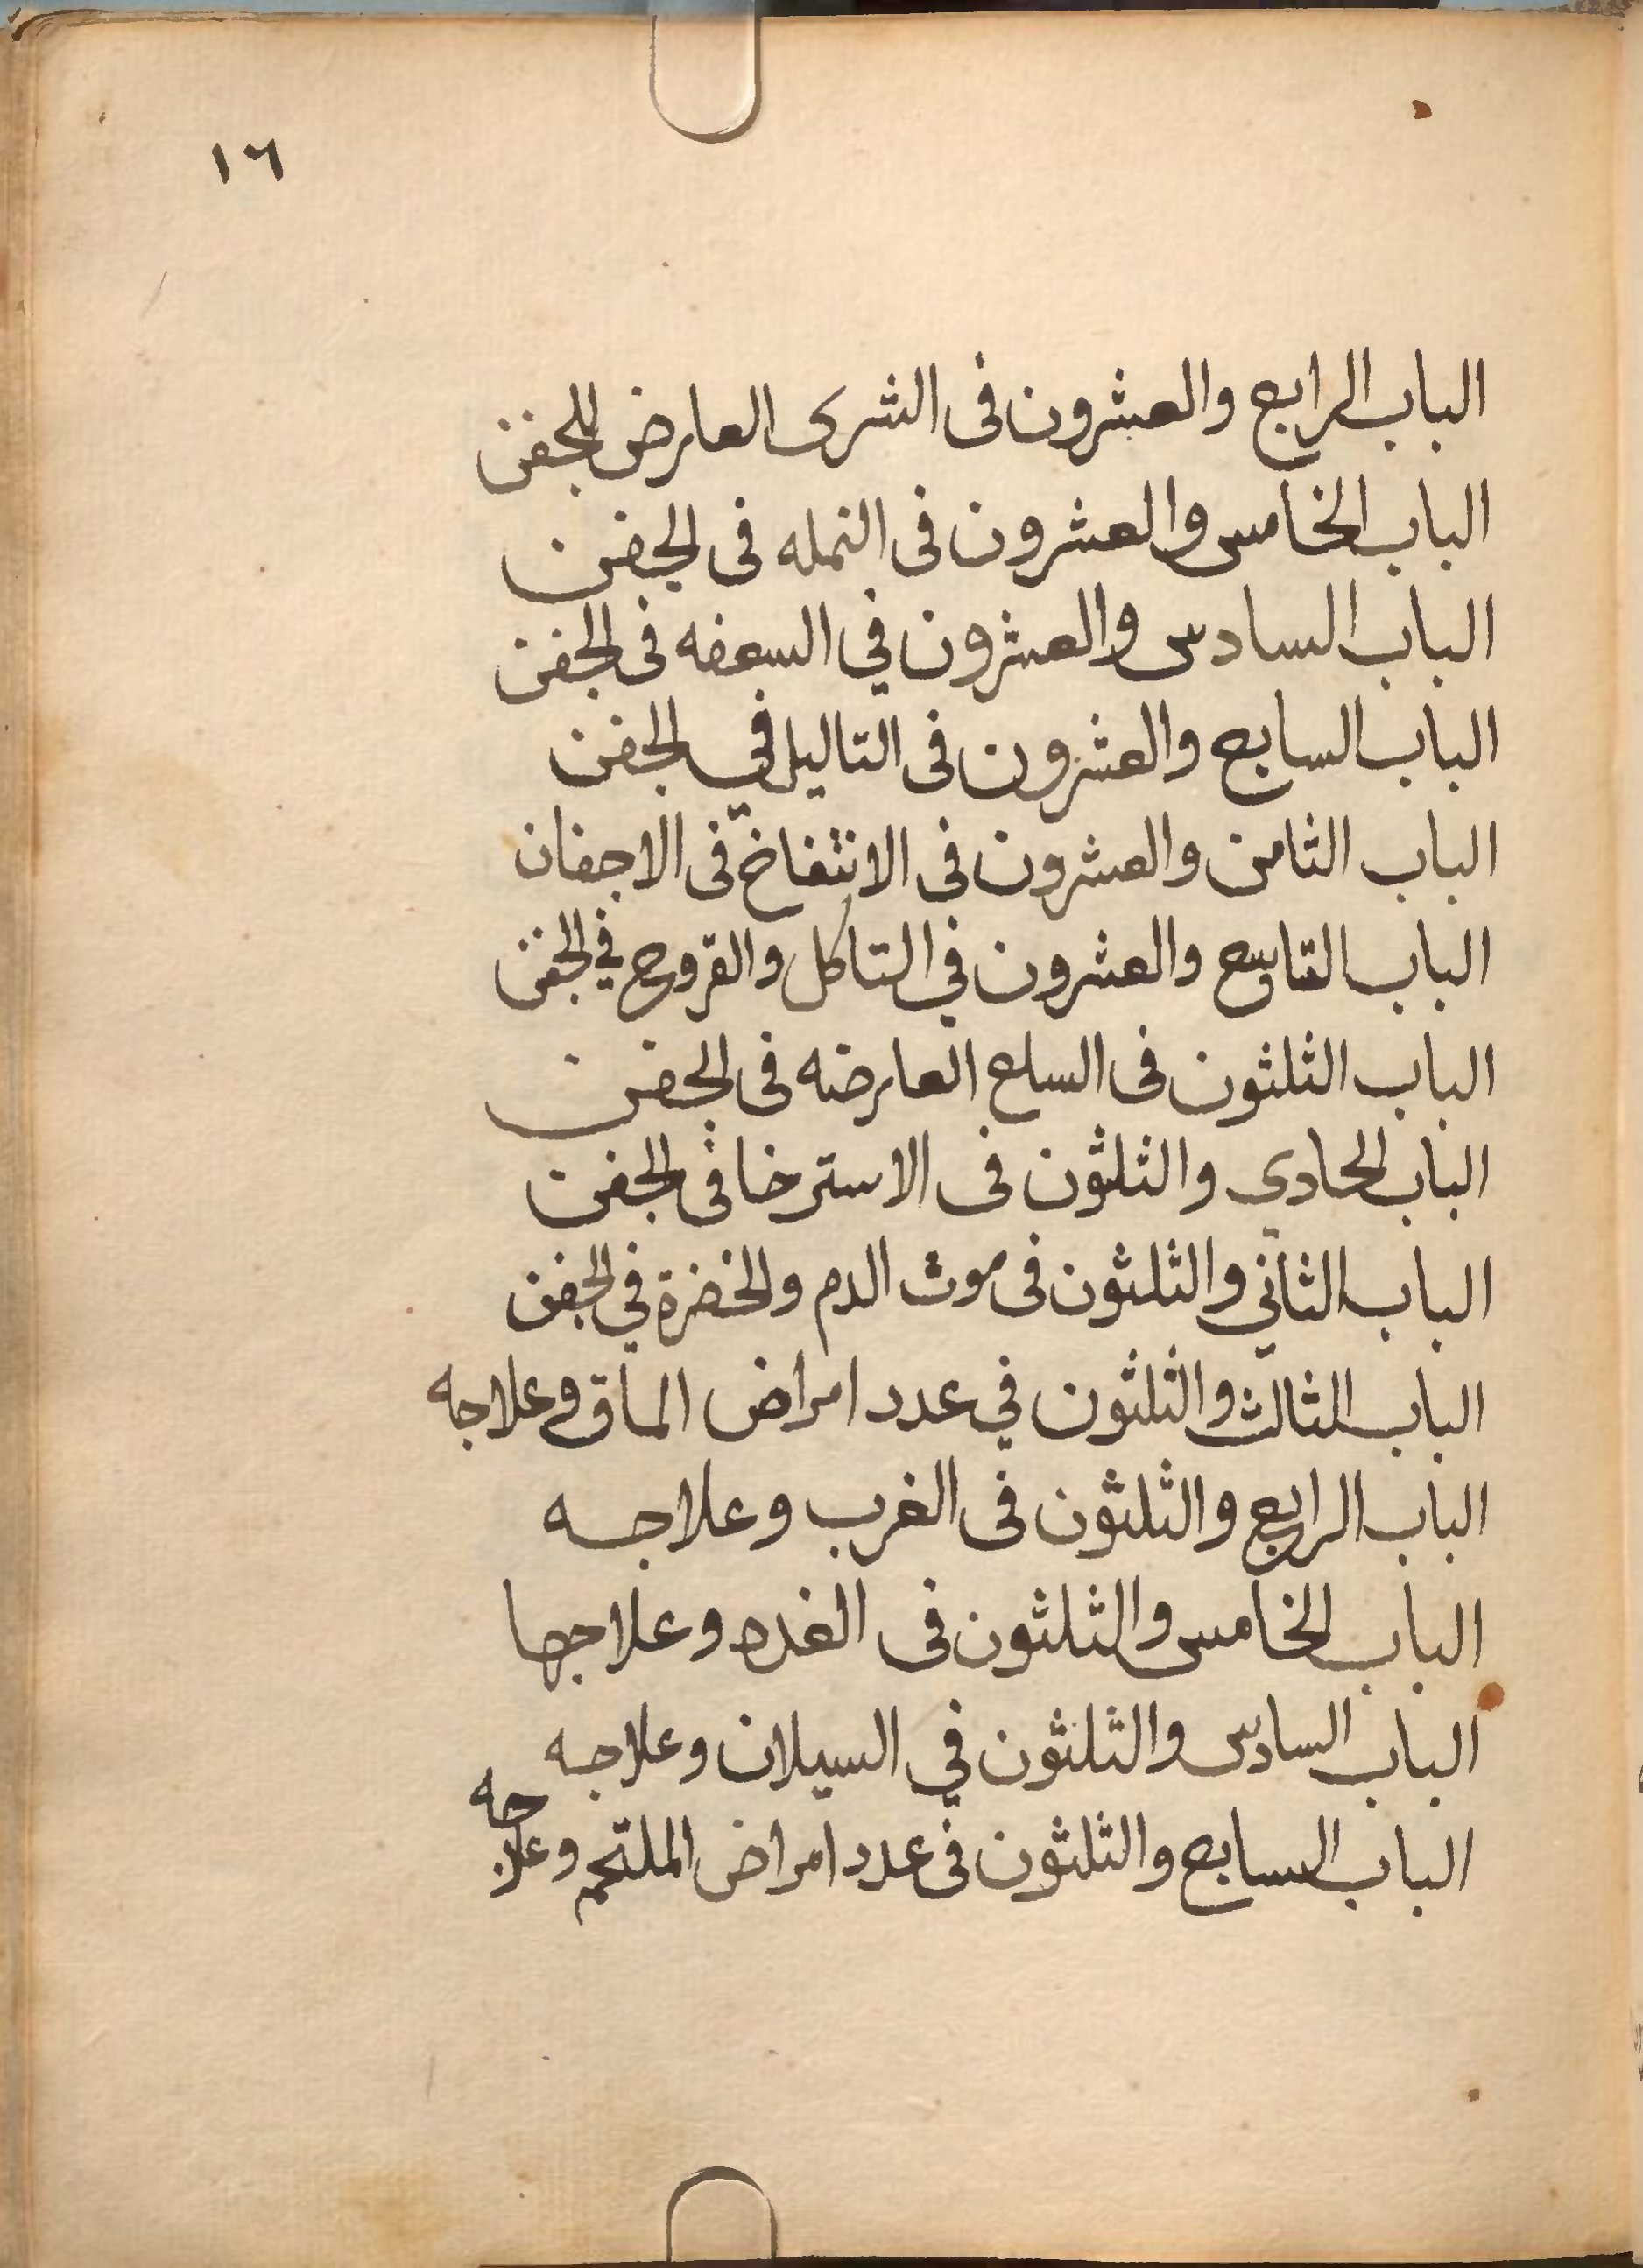 ١٦
الباب الرابع والعشرون فى الشرى العارض للجفن
الباب الخامس والعشرون فى النمله فى الجفن
الباب السادس والعشرون في السعفه فى الجفن
الباب السابع والعشرون فى التاليل في الجفن
الباب الثامن والعشرون فى الانتفاخ فى الاجفان
الباب التاسع والعشرون في التاكل والقروح في الجفن
الباب الثلثون فى السلع العارضه فى الجفن
الباب الحادي والثلثون فى الاسترخا فى الجفن
الباب الثاني والثلثون فى موت الدم والخضرة في الجفن
الباب الثالث والثلثون في عدد امراض الماق وعلاجه
الباب الرابع والثلثون فى الغرب وعلاجه
الباب الخامس والثلثون فى الغده وعلاجها
الباب السادس والثلثون في السيلان وعلاجه
الباب السابع والثلثون فى عدد امراض الملتحم وعلاجه